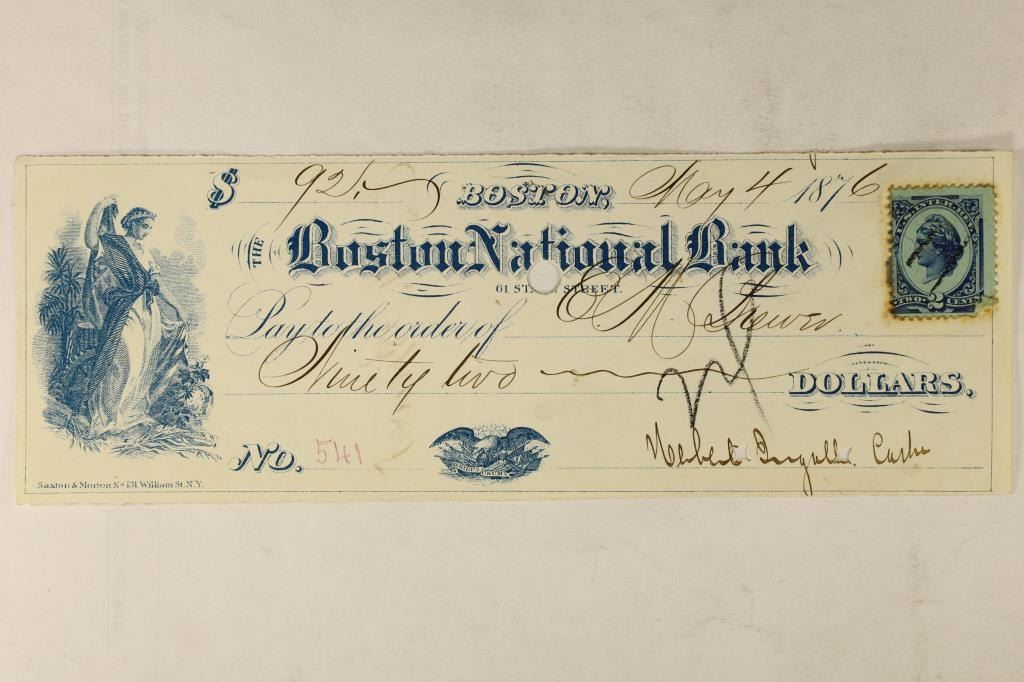 $ 92/. BOSTON, May 4 1876
THE Boston National Bank
61 ST STREET.
Pay to the order of E M. Brewer.
Ninety two DOLLARS.
No. 541
Herbert Ingalls. Cashr
Saxton & Morton No 151 William St. N.Y.
U.S. INTER. REV.
TWO 2 CENTS